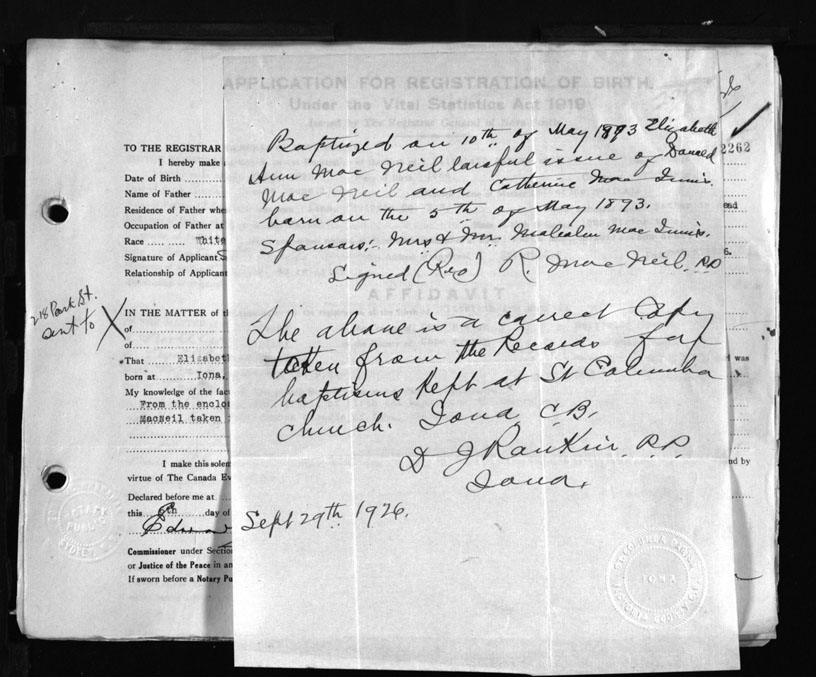 APPLICATION FOR REGISTRATION OF BIRTH
Under the Vital Statistics Act 1919
2262
TO THE REGISTRAR
I hereby make
Date of Birth
Name of Father
Residence of Father whe
Occupation of Father at
Race White
Signature of Applicant
Relationship of Applicant
218 Park St.
sent to
IN THE MATTER of th
of
of
That Elizabeth
born at Iona,
My knowledge of the fac
From the enclo
MacNeil taken
I make this solem
virtue of The Canada Ev
Declared before me at
this 6th day of
Edward
Commissioner under Section
or Justice of the Peace in an
If sworn before a Notary Pu
Baptized on 10th of May 1893 Elizabeth
Ann Mac Neil lawful issue of Donald
Mac Neil and Catherine Mac Innis.
born on the 5th of May 1893.
Sponsors:- Mrs & Mr. Malcolm Mac Innis.
Signed (Rev) R. Mac Neil. P.P.
AFFIDAVIT
The above is a correct Copy
taken from the Records for
baptisms kept at St Columba
church. Iona C.B.
D J Rankin. P.P.
Iona.
Sept 29th 1926.
IONA